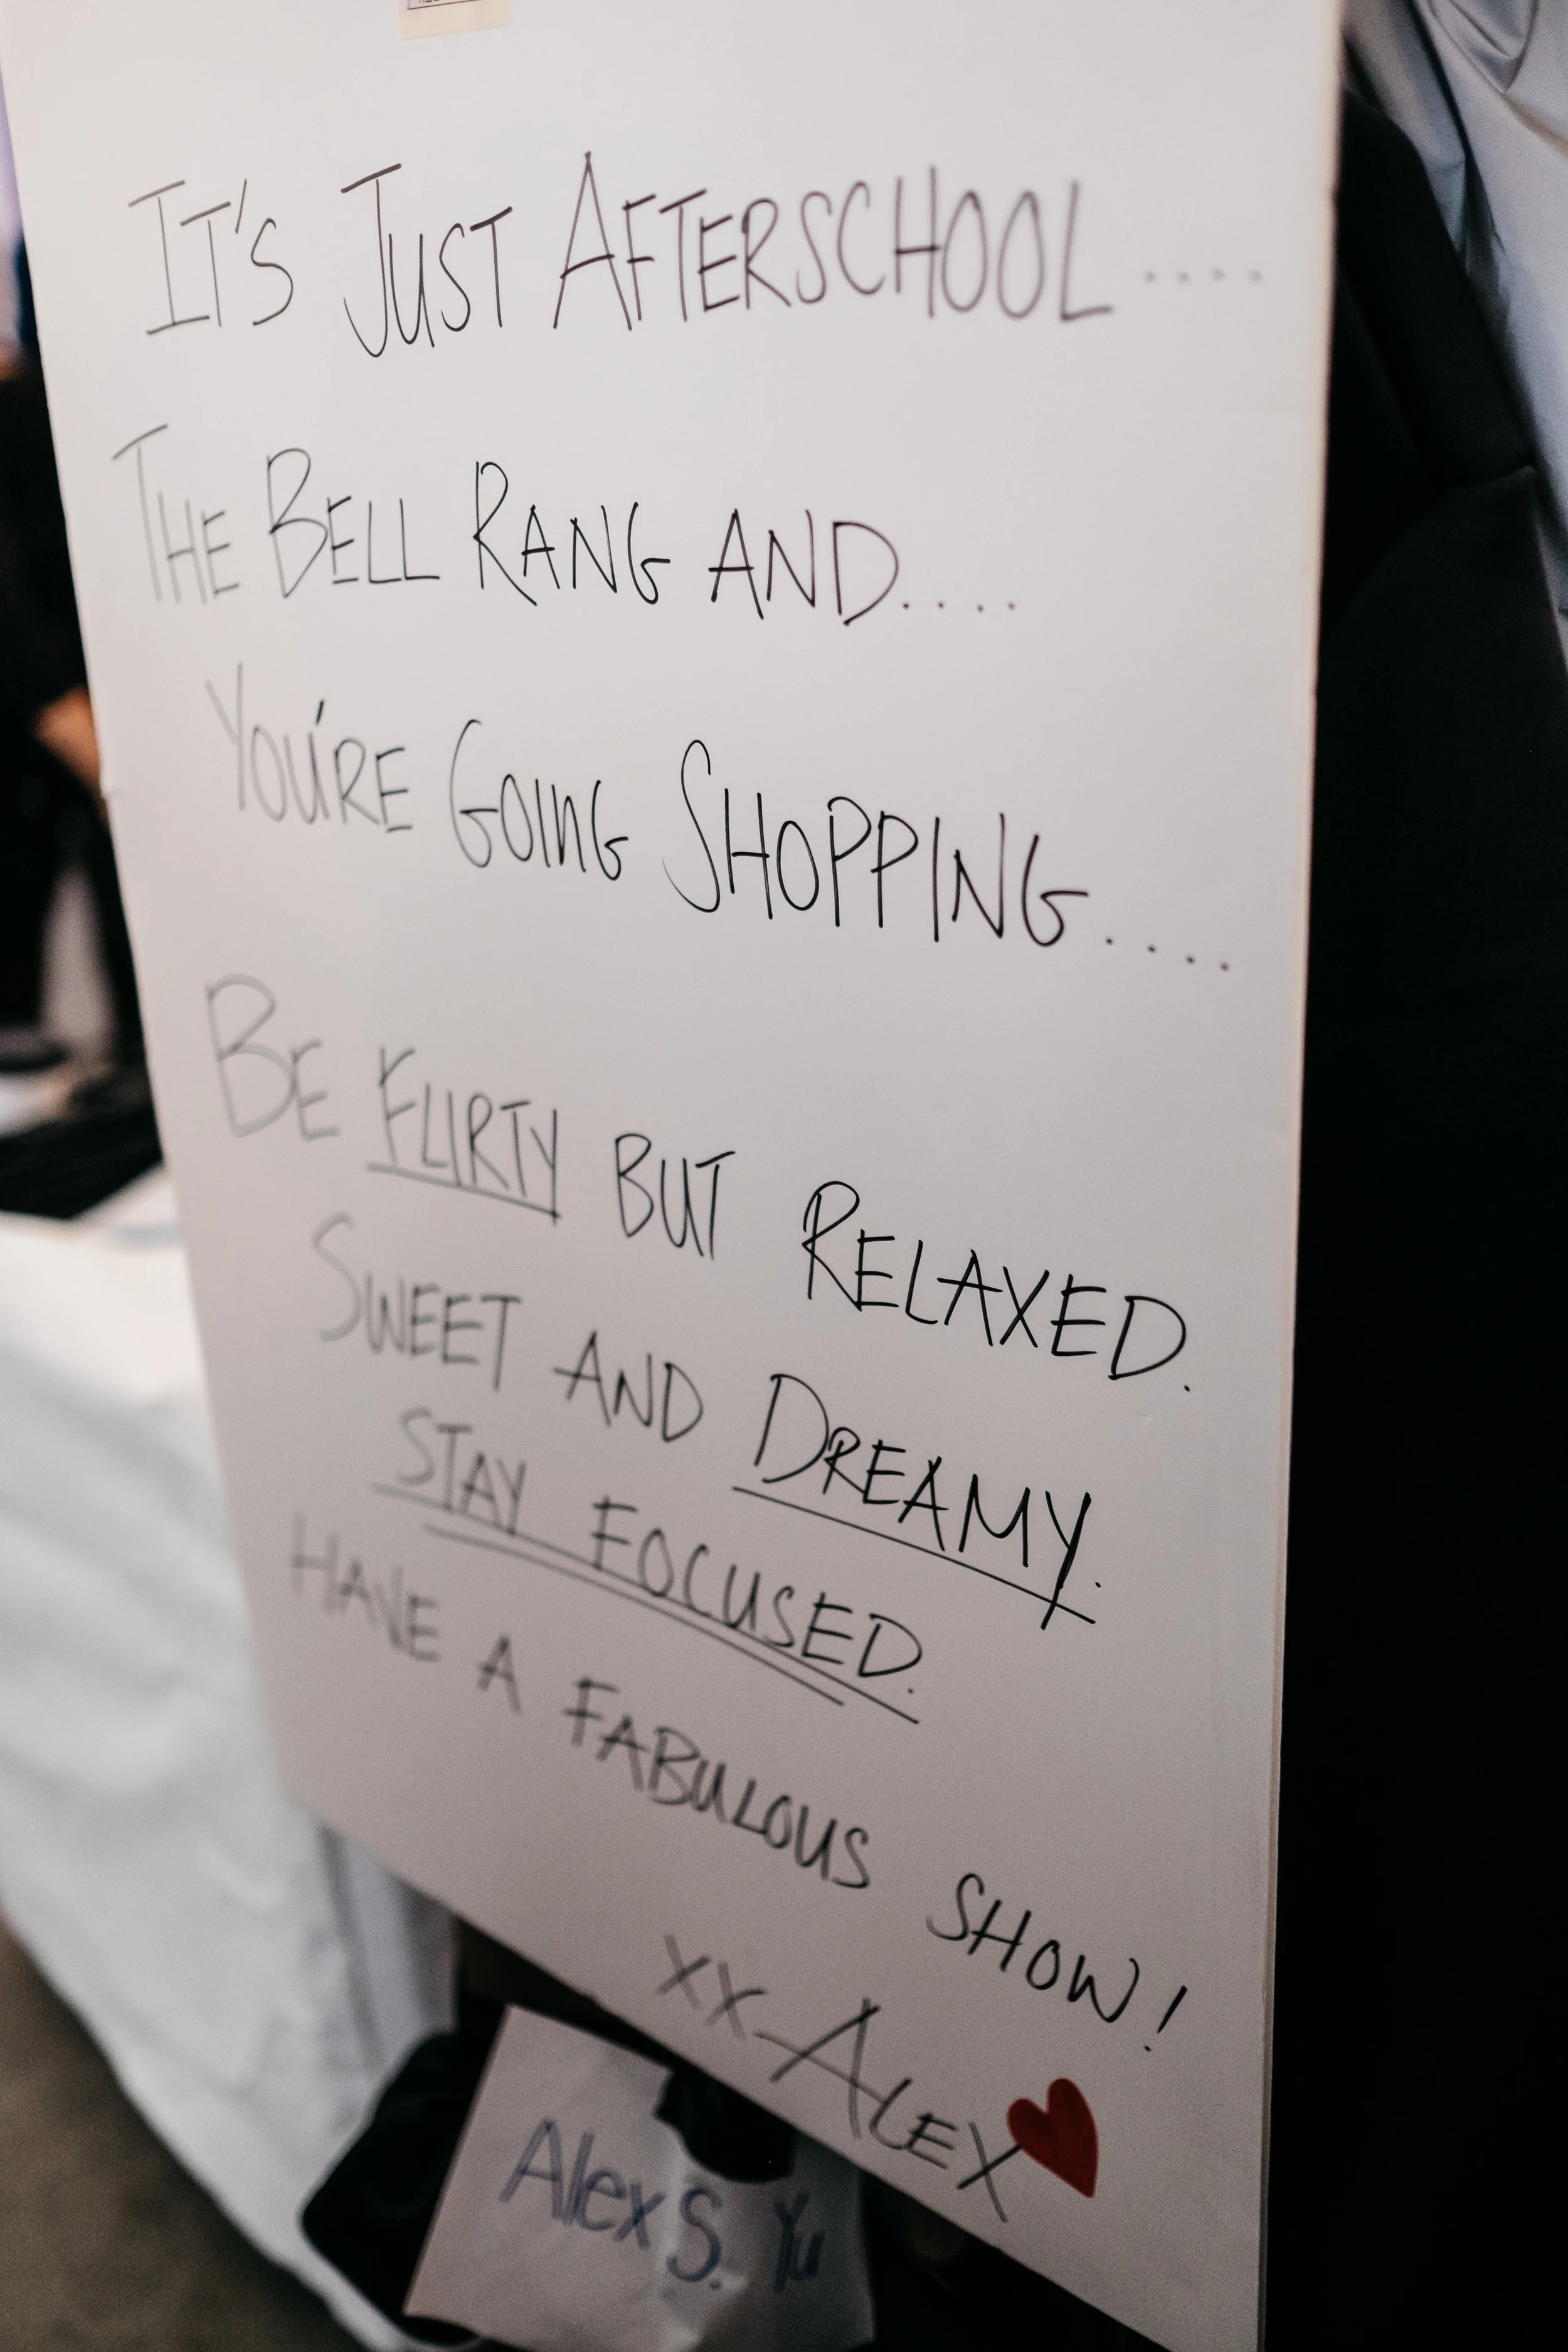 IT'S JUST AFTERSCHOOL....
THE BELL RANG AND....
YOU'RE GOING SHOPPING....
BE FLIRTY BUT RELAXED.
SWEET AND DREAMY.
STAY FOCUSED.
HAVE A FABULOUS SHOW!
XX-ALEX
Alex S. Yu